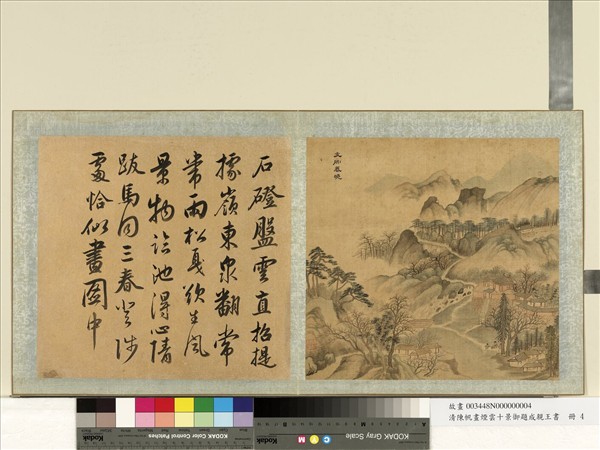 石磴盤雲直招提
據嶺東泉翻常
帶雨松戛欲生風
景物臨池得心情
跋馬同三春登陟
處恰似畫圖中
Kodak
KODAK Color Control Patches
KODAK Gray Scale
C Y M
Kodak
故畫 003448N000000004
清陳帆畫煙雲十景御題成親王書 冊 4